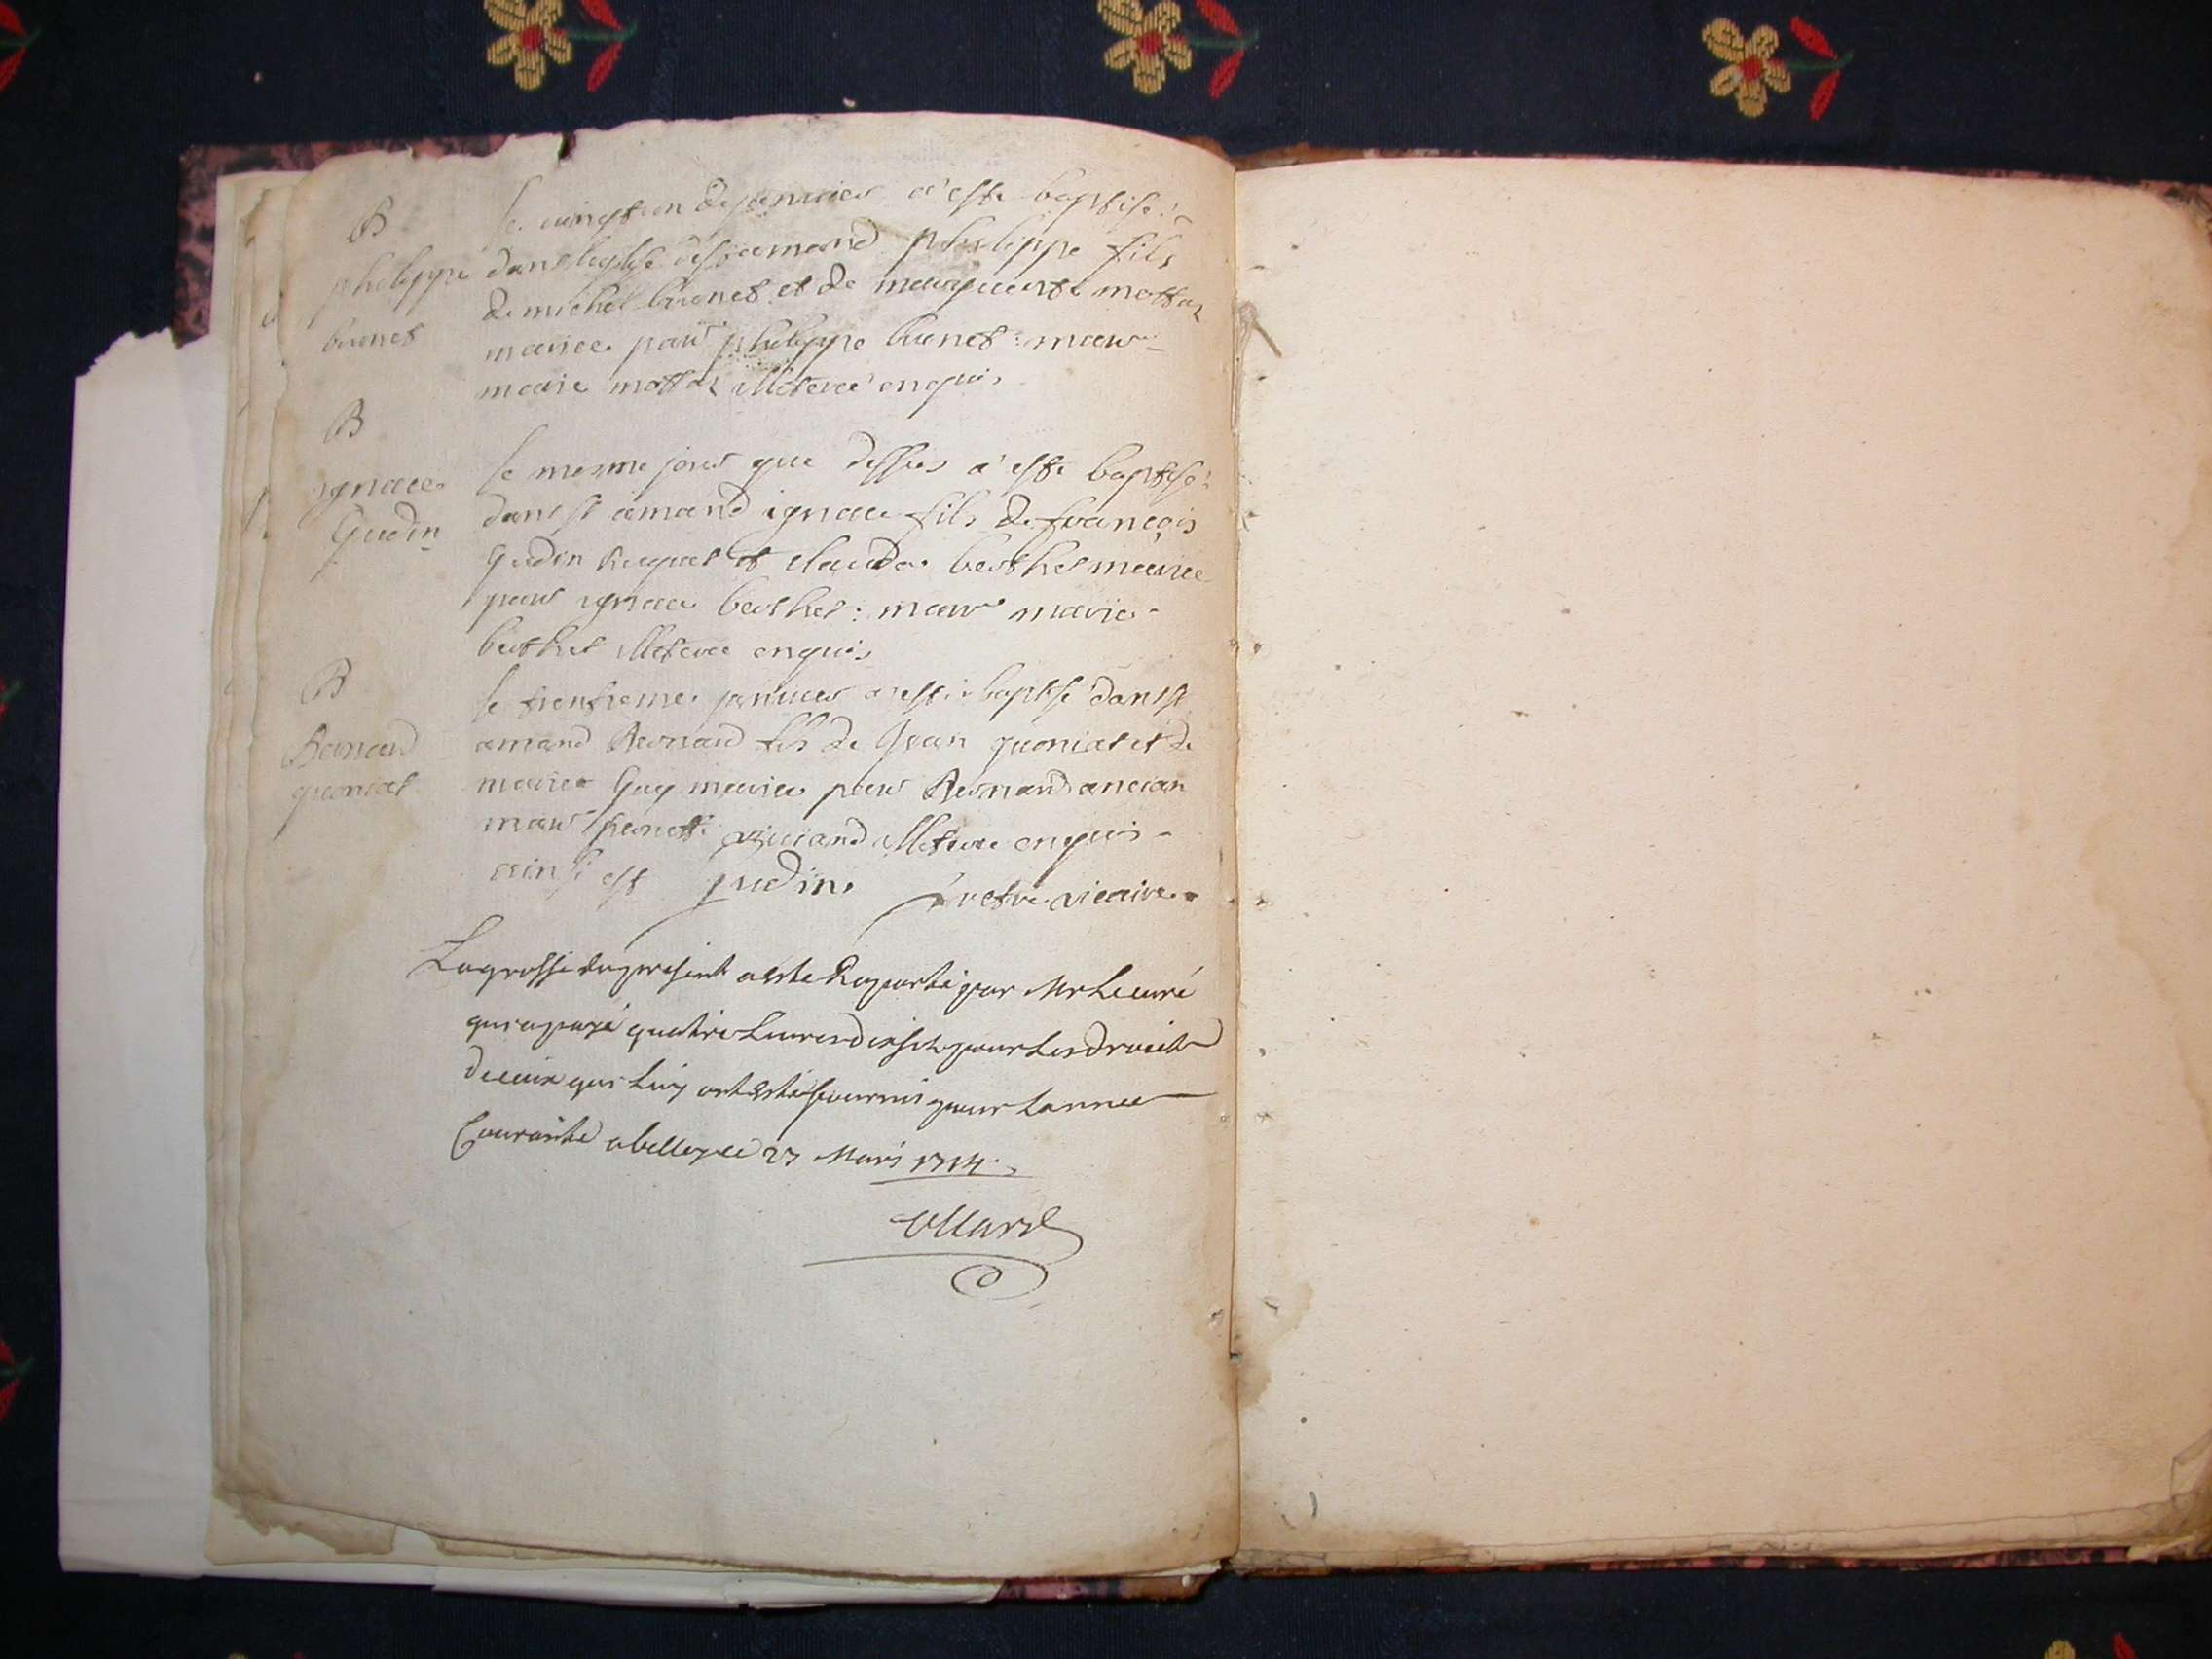 B
philippe
brenet
le vingt un de janvier a esté baptisé
dans leglise de st amand philippe fils
de michel brenet et de marguerite mottas
mariee par philippe brenet : mar
marie mottas illeteree enquis
B
ignace
Gudin
le mesme jour que dessus a esté baptisé
dans st amand ignace fils de francois
Gudin huguet et clauda berthet mariee
par ignace berthet : mar marie
berthet illeteree enquis
B
Bernard
quoniat
le trentieme janvier a esté baptisé dans st
amand Bernard fils de Jean quoniat et de
marie Guy mariee par Bernard ancian
mar illeteree enquis
ainsi est gudin pretre vicaire
La grosse du present a esté Raporté par Mr Le curé
qui a payé quatre Livres dix sols pour Les droicts
de ceux qui Luy ont esté fournis pour Lannee
Courante a belley ce 27 Mars 1714